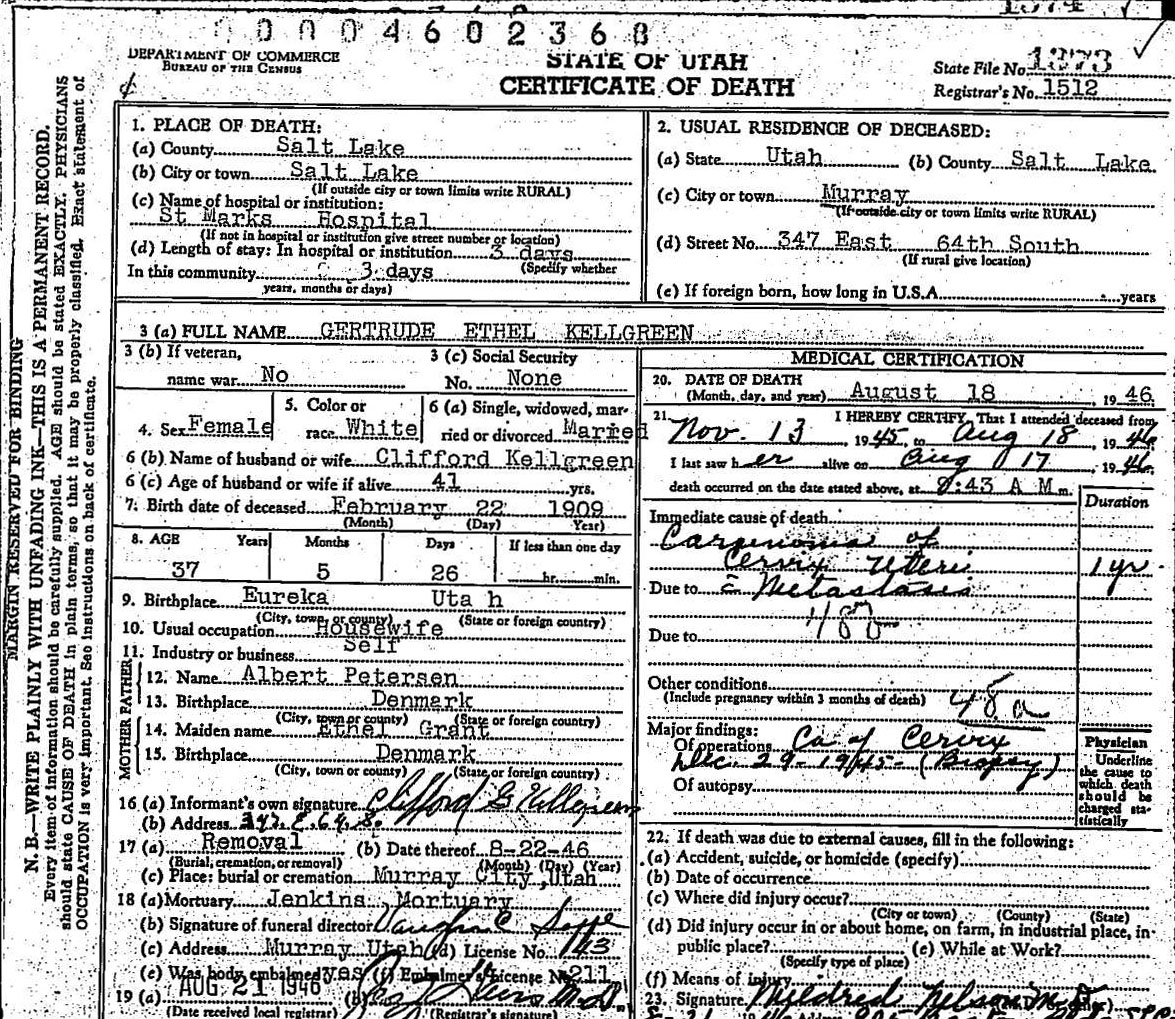 00004602368
DEPARTMENT OF COMMERCE
BUREAU OF THE CENSUS
STATE OF UTAH
CERTIFICATE OF DEATH
State File No. 1373
Registrar's No. 1512
MARGIN RESERVED FOR BINDING
N. B.—WRITE PLAINLY WITH UNFADING INK—THIS IS A PERMANENT RECORD.
Every item of information should be carefully supplied. AGE should be stated EXACTLY. PHYSICIANS
should state CAUSE OF DEATH in plain terms, so that it may be properly classified. Exact statement of
OCCUPATION is very important. See instructions on back of certificate.
1. PLACE OF DEATH:
(a) County Salt Lake
(b) City or town Salt Lake
(If outside city or town limits write RURAL)
(c) Name of hospital or institution:
St Marks Hospital
(If not in hospital or institution give street number or location)
(d) Length of stay: In hospital or institution 3 days
(Specify whether
In this community 3 days
years, months or days)
2. USUAL RESIDENCE OF DECEASED:
(a) State Utah (b) County Salt Lake
(c) City or town Murray
(If outside city or town limits write RURAL)
(d) Street No. 347 East 64th South
(If rural give location)
(e) If foreign born, how long in U.S.A. years
3 (a) FULL NAME GERTRUDE ETHEL KELLGREEN
3 (b) If veteran,
name war No
3 (c) Social Security
No. None
4. Sex Female
5. Color or
race White
6 (a) Single, widowed, mar-
ried or divorced Marred
6 (b) Name of husband or wife Clifford Kellgreen
6 (c) Age of husband or wife if alive 41 yrs.
7. Birth date of deceased February 22 1909
(Month) (Day) Year)
8. AGE Years Months Days If less than one day
37 5 26 hr. min.
9. Birthplace Eureka Uta h
(City, town or county) (State or foreign country)
10. Usual occupation Housewife
11. Industry or business Self
FATHER
12. Name Albert Petersen
13. Birthplace Denmark
(City, town or county) (State or foreign country)
MOTHER
14. Maiden name Ethel Grant
15. Birthplace Denmark
(City, town or county) (State or foreign country)
16 (a) Informant's own signature Clifford G Kellgreen
(b) Address 347. E. 64. S.
17 (a) Removal (b) Date thereof 8-22-46
(Burial, cremation, or removal) (Month) (Day) (Year)
(c) Place: burial or cremation Murray City, Utah
18 (a) Mortuary Jenkins Mortuary
(b) Signature of funeral director Vaughn C
(c) Address Murray Utah (d) License No. 143
(e) Was body embalmed yes (f) Embalmer's License No 211
19 (a) AUG 21 1946 (b) M.D.
(Date received local registrar) (Registrar's signature)
MEDICAL CERTIFICATION
20. DATE OF DEATH
(Month, day, and year) August 18, 1946
21. I HEREBY CERTIFY, That I attended deceased from
Nov. 13 1945, to Aug 18, 1946
I last saw her alive on Aug 17, 1946
death occurred on the date stated above, at 8:43 A M m.
Duration
Immediate cause of death
Carcenoma of
Cervix Uteri 1 yr
Due to c̄ Metastasis
48
Due to
Other conditions
(Include pregnancy within 3 months of death) 48a
Major findings:
Of operations Ca of Cervix
Dec. 29-1945-(Biopsy)
Of autopsy
Physician
Underline
the cause to
which death
should be
charged sta-
tistically
22. If death was due to external causes, fill in the following:
(a) Accident, suicide, or homicide (specify)
(b) Date of occurrence
(c) Where did injury occur?
(City or town) (County) (State)
(d) Did injury occur in or about home, on farm, in industrial place, in
public place? (e) While at Work?
(Specify type of place)
(f) Means of injury
23. Signature Mildred Nelson M.D.